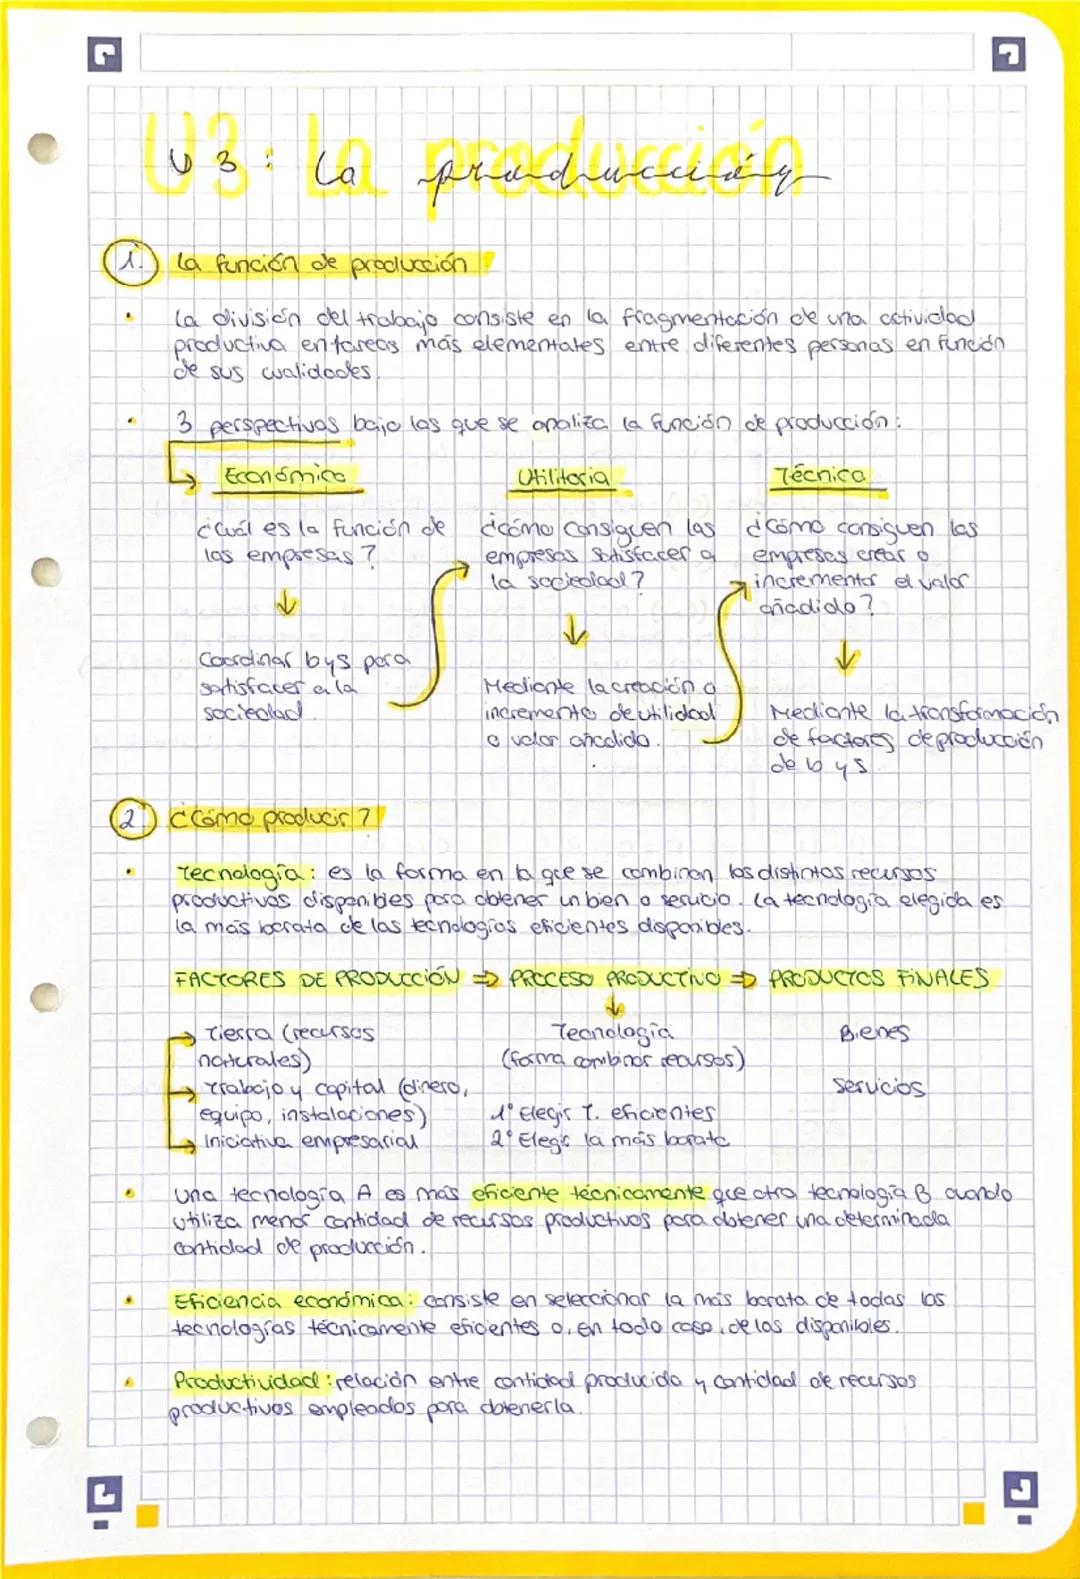 U3: La producción
1. La función de producción
• La división del trabajo consiste en la fragmentación de una actividad
productiva en tareas más elementales entre diferentes personas en función
de sus cualidades.
• 3 perspectivas bajo las que se analiza la función de producción:
Económica
¿Cuál es la función de
las empresas?
↓
Coordinar b y s para
satisfacer a la
sociedad.
Utilitaria
¿Cómo consiguen las
empresas satisfacer a
la sociedad?
↓
Mediante la creación o
incremento de utilidad
o valor añadido.
Técnica
¿Cómo consiguen las
empresas crear o
incrementar el valor
añadido?
↓
Mediante la transformación
de factores de producción
de b y s.
2. ¿Cómo producir?
• Tecnología: es la forma en la que se combinan los distintos recursos
productivos disponibles para obtener un bien o servicio. La tecnología elegida es
la más barata de las tecnologías eficientes disponibles.
FACTORES DE PRODUCCIÓN ⇒ PROCESO PRODUCTIVO ⇒ PRODUCTOS FINALES
→ Tierra (recursos
naturales)
→ Trabajo y capital (dinero,
equipo, instalaciones)
→ Iniciativa empresarial
↓
Tecnología
(forma combinar recursos)
1º Elegir T. eficientes
2º Elegir la más barata
Bienes
Servicios
• Una tecnología A es más eficiente técnicamente que otra tecnología B cuando
utiliza menor cantidad de recursos productivos para obtener una determinada
cantidad de producción.
• Eficiencia económica: consiste en seleccionar la más barata de todas las
tecnologías técnicamente eficientes o, en todo caso, de las disponibles.
• Productividad: relación entre cantidad producida y cantidad de recursos
productivos empleados para obtenerla.